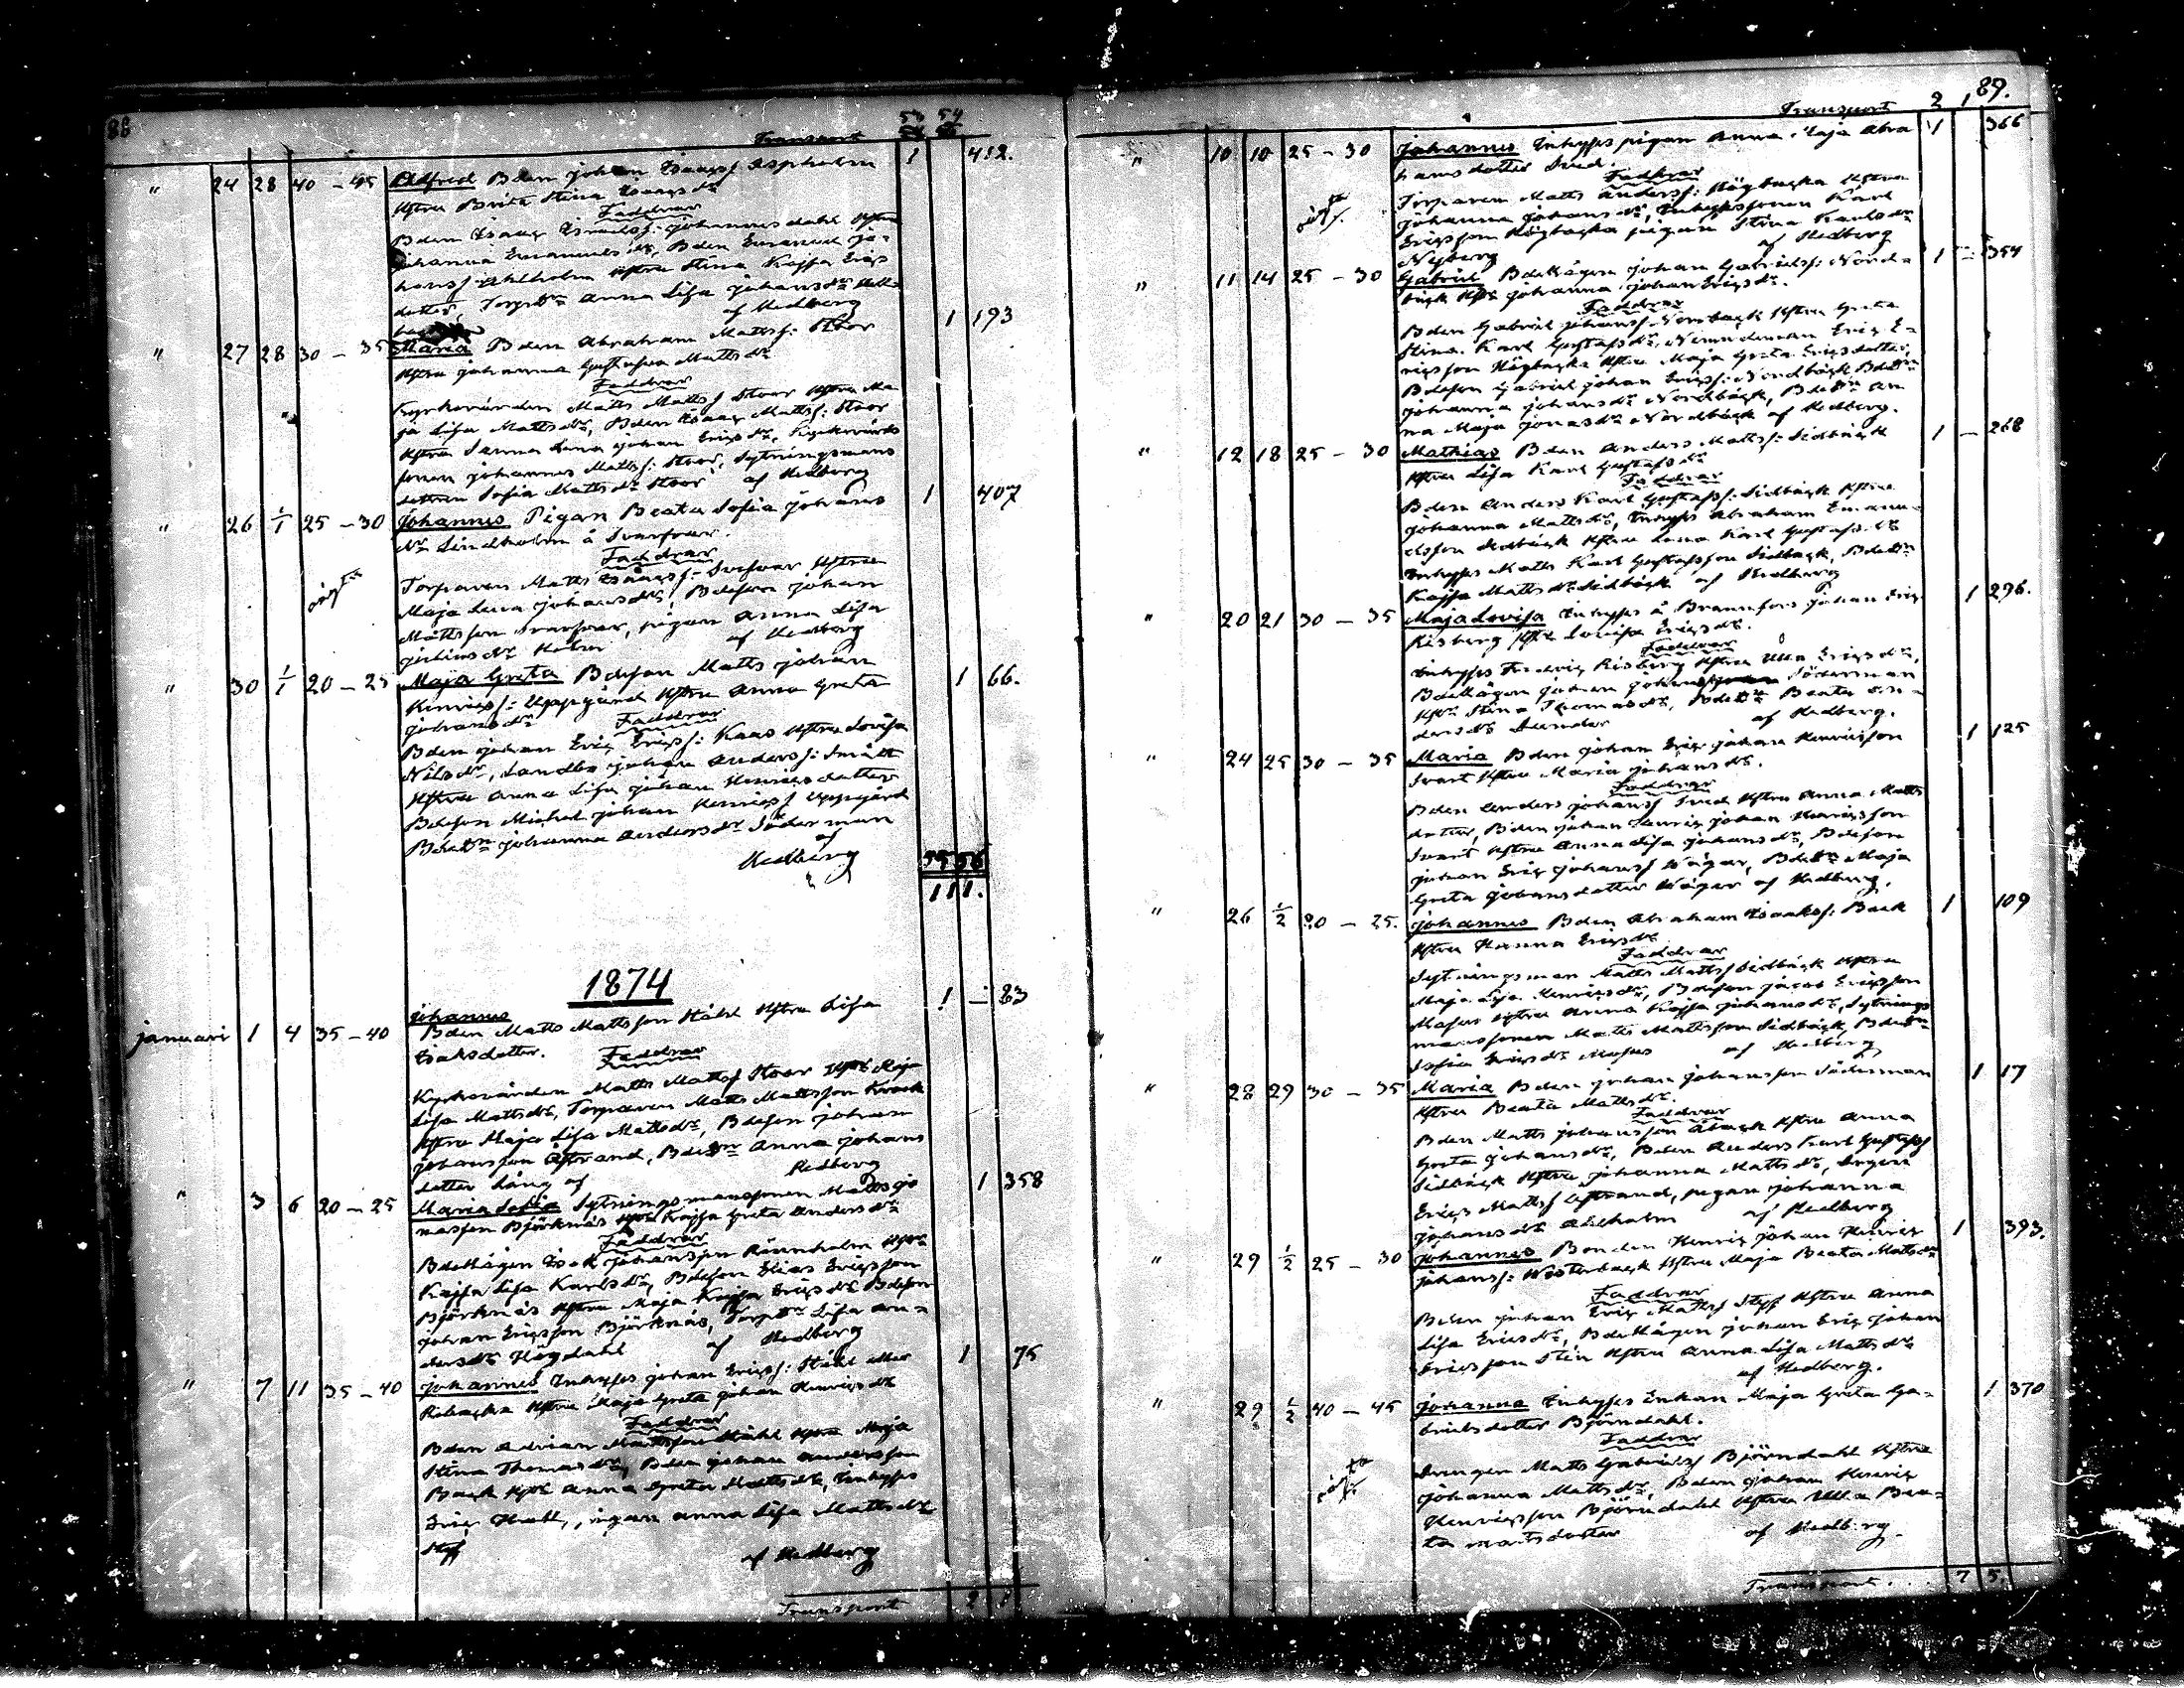 88
Transport 53 54
" 24 28 40 - 45 Alfred Bden Johan Isaacss Aspholm 1 412.
Hstru Brita Stina Isaacsdr
Faddrar
Bden Isaac Israelss: Johannesdahl Hstru
Johanna Emanuelsdr, Bden Emanuel Jo-
hanss Ahlholm Hstru Stina Kajsa Erics
dotter, Torpdr Anna Lisa Johansdr
af Hedberg
" 27 28 30 - 35 Maria Bden Abraham Mattss: Stoor 1 193
Hstru Johanna Gustava Mattsdr
Faddrar
Kyrkovärden Matts Mattss Stoor Hstru Ma
ja Lisa Mattsdr, Bden Isaac Mattss: Stoor
Hstru Sanna Lena Johan Ericsdr, Kyrkovärds
sonen Johannes Mattss: Stoor, Sytningsmans
dottren Sofia Mattsdr Stoor af Hedberg
" 26 1/1 25 - 30 Johannes Pigan Beata Sofia Johans 1 407
dr Lindholm å Svarfvar.
Faddrar
Torparen Matts Isaacss: Svarfvar Hstru
Maja Lena Johansdr, Bdeson Johan
Mattsson Svarfvar, pigan Anna Lisa
Juliusdr Holm af Hedberg
" 30 1/1 20 - 25 Maja Greta Bdeson Matts Johan 1 66.
Henricss: Uppgård Hstru Anna Greta
Johansdr Faddrar
Bden Johan Eric Ericss: Kaas Hstru Lovisa
Nilsdr, Landbo Johan Anderss: Smått
Hstru Anna Lisa Johan Henricsdotter
Bdeson Michel Johan Henricss Uppgård
Bdedtr Johanna Andersdr Söderman
af
Hedberg 55 56
111.
1874
Johannes 1 - 83
januari 1 4 35 - 40 Bden Matts Mattsson Ståhl Hstru Lisa
Isaksdotter. Faddrar
Kyrkovärden Matts Mattss Stoor Hstr Maja
Lisa Mattsdr, Torparen Matts Mattsson Krook
Hstru Maja Lisa Mattsdr, Bdeson Johan
Johansson Åstrand, Bdedtr Anna Johans
dotter Lång af Hedberg
" 3 6 20 - 25 Maria Sofia Sytningsmanssonen Matts Jo 1 358
nasson Björknäs Hstr Kajsa Greta Andersdr
Faddrar
Bdemågen Isak Johansson Rönnholm Hstr
Kajsa Lisa Karlsdr, Bdeson Elias Ericsson
Björknäs Hstru Maja Kajsa Ericsdr Bdeson
Johan Ericsson Björknäs, Torpdr Lisa An-
dersdr Högdahl af Hedberg
" 7 11 35 - 40 Johannes Inhyses Johan Ericss: Ståhl eller 1 75
Robacka Hstru Maja Greta Johan Henricsdr
Faddrar
Bden Adrian Mattsson Ståhl Hstru Maja
Stina Thomasdr, Bden Johan Andersson
Back Hstr Anna Greta Mattsdr, Inhyses
Eric Hall, pigan Anna Lisa Mattsdr
Styf
af Hedberg
Transport 2 1
89.
Transport 2 1
" 10 10 25 - 30 Johannes Inhyses pigan Anna Caja Abra 1 366
hamsdotter Sved.
Faddrar
Torparen Matts Anderss: Högbacka Hstru
Johanna Johansdr, Inhysessonen Karl
Ericsson Högbacka pigan Stina Karlsdr
Nyberg af Hedberg
" 11 14 25 - 30 Gabriel Bdemågen Johan Gabrielss: Nord- 1 - 354
bäck Hstr Johanna Johan Ericsdr.
Faddrar
Bden Gabriel Johanss Norrback Hstru Greta
Stina Karl Gustafsdr, Nämndeman Eric E-
ricsson Högbacka Hstru Maja Greta Ericsdotter,
Bdeson Gabriel Johan Ericss: Nordbäck Bdedtr
Johanna Johansdr Nordbäck, Bdedtr An
na Maja Jonasdr Nordbäck af Hedberg.
" 12 18 25 - 30 Mathias Bden Anders Mattss: Sidbäck 1 - 268
Hstru Lisa Karl Gustafsdr
Faddrar
Bden Anders Karl Gustafss: Sidbäck Hstru
Johanna Mattsdr, Inhyses Abraham Emanu-
elsson Sidbäck Hstru Lena Karl Gustafsdr
Inhyses Matts Karl Gustafsson Sidbäck, Bdedtr
Kajsa Mattsdr Sidbäck af Hedberg
" 20 21 30 - 35 Maja Lovisa Inhyses å Brannfors Johan Eric 1 296.
Risberg Hstr Lovisa Ericsdr.
Faddrar
Inhyses Fredric Risberg Hstru Ulla Ericsdr,
Bdemågen Johan Johansson Söderman
Hstr Stina Thomasdr, Bdedtr Beata An-
dersdr Sunder af Hedberg.
" 24 25 30 - 35 Maria Bden Johan Eric Johan Henricsson 1 125
Svart Hstru Maria Johansdr.
Faddrar
Bden Anders Johanss Sved Hstru Anna Matts
dotter, Bden Johan Henric Johan Henricsson
Svart Hstru Anna Lisa Johansdr, Bdeson
Johan Eric Johanss Wägar, Bdedtr Maja
Greta Johansdotter Wägar af Hedberg.
" 26 1/2 20 - 25. Johannes Bden Abraham Isaakss: Back 1 109
Hstru Hanna Ericsdr
Faddrar
Sytningsman Matts Mattss Sidbäck Hstru
Maja Lisa Henricsdr, Bdeson Jacob Ericsson
Masus Hstru Anna Kajsa Johansdr, Sytnings
manssonen Matts Mattsson Sidbäck, Bdedtr
Sofia Ericsdr Masus af Hedberg
" 28 29 30 - 35 Maria Bden Johan Johansson Söderman 1 17
Hstru Beata Mattsdr.
Faddrar
Bden Matts Johansson Åback Hstru Anna
Greta Johansdr, Bden Anders Karl Gustafss
Sidbäck Hstru Johanna Mattsdr, Drgen
Erics Mattss Åstrand, pigan Johanna
Johansdr Ahlholm af Hedberg
" 29 1/2 25 - 30 Johannes Bonden Henric Johan Henric 1 393.
Johanss: Westerback Hstru Maja Beata Mattsdr
Faddrar
Bden Johan Eric Mattss Styf Hstru Anna
Lisa Ericsdr, Bdemågen Johan Eric Johan
Ericsson Stin Hstru Anna Lisa Mattsdr
af Hedberg.
" 29 1/2 40 - 45 Johanna Inhyses Enkan Maja Greta Ga- 1 370
brielsdotter Björndahl.
Faddrar
Drengen Matts Gabrielss Björndahl Hstru
Johanna Mattsdr, Bden Johan Henric
Henricsson Björndahl Hstru Ulla Bea-
ta Mattsdotter af Hedberg.
Transport . . . 7 5.